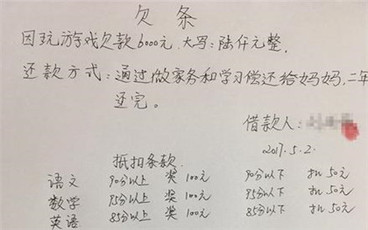 欠条
因玩游戏欠款6000元,大写:陆仟元整.
还款方式:通过做家务和学习偿还给妈妈.二年
还完。
借款人:
2017.5.2.
抵扣条款
语文 90分以上 奖 100元 90分以下 扣 50元
数学 95分以上 奖 100元 95分以下 扣 50元
英语 85分以上 奖 100元 85分以下 扣 50元